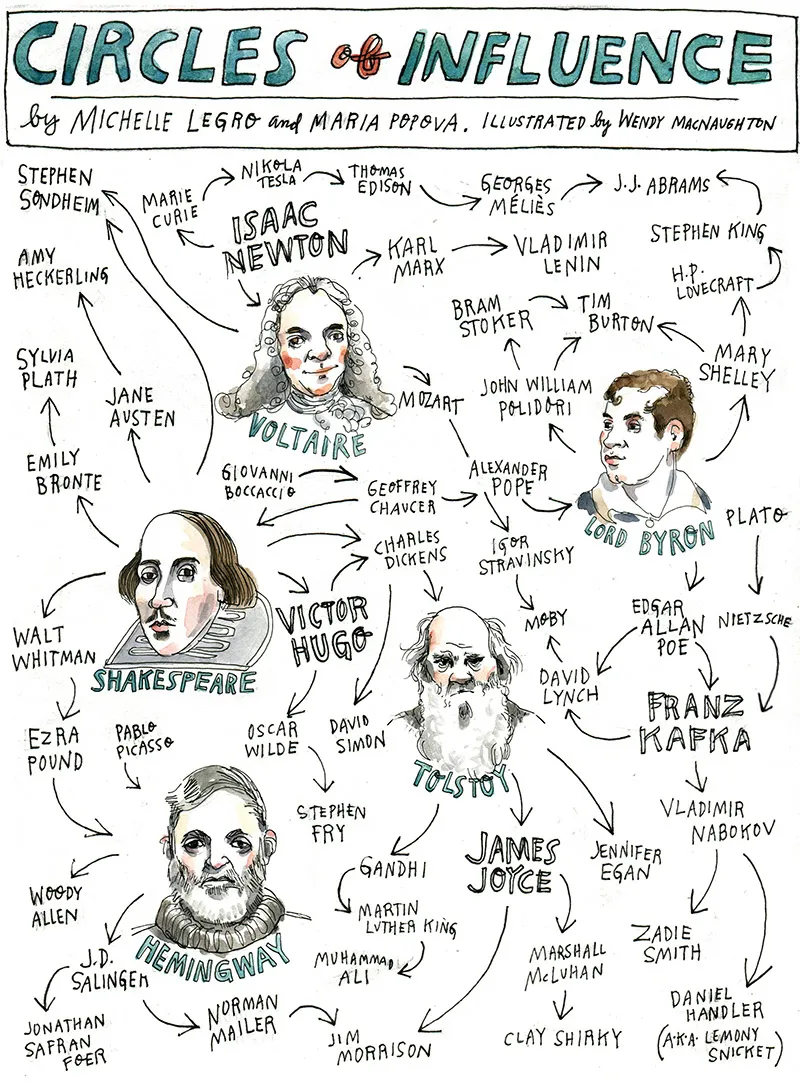 CIRCLES of INFLUENCE
by MICHELLE LEGRO and MARIA POPOVA. ILLUSTRATED by WENDY MACNAUGHTON
STEPHEN
SONDHEIM
MARIE
CURIE
NIKOLA
TESLA
THOMAS
EDISON
GEORGES
MÉLIÈS
J.J. ABRAMS
ISAAC
NEWTON
KARL
MARX
VLADIMIR
LENIN
STEPHEN KING
AMY
HECKERLING
H.P.
LOVECRAFT
BRAM
STOKER
TIM
BURTON
SYLVIA
PLATH
JANE
AUSTEN
MOZART
JOHN WILLIAM
POLIDORI
MARY
SHELLEY
VOLTAIRE
EMILY
BRONTE
GIOVANNI
BOCCACCIO
GEOFFREY
CHAUCER
ALEXANDER
POPE
LORD BYRON
PLATO
CHARLES
DICKENS
IGOR
STRAVINSKY
VICTOR
HUGO
MOBY
EDGAR
ALLAN
POE
NIETZSCHE
WALT
WHITMAN
SHAKESPEARE
DAVID
LYNCH
FRANZ
KAFKA
EZRA
POUND
PABLO
PICASSO
OSCAR
WILDE
DAVID
SIMON
TOLSTOY
STEPHEN
FRY
VLADIMIR
NABOKOV
GANDHI
JAMES
JOYCE
JENNIFER
EGAN
WOODY
ALLEN
MARTIN
LUTHER KING
ZADIE
SMITH
HEMINGWAY
J.D.
SALINGER
MUHAMMAD
ALI
MARSHALL
McLUHAN
JONATHAN
SAFRAN
FOER
NORMAN
MAILER
JIM
MORRISON
CLAY SHIRKY
DANIEL
HANDLER
(A.K.A. LEMONY
SNICKET)